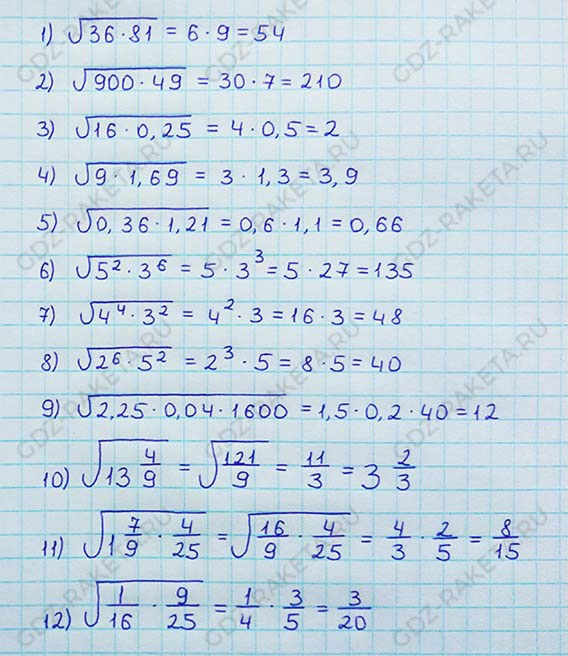 1) √36·81 = 6·9 = 54
2) √900·49 = 30·7 = 210
3) √16·0,25 = 4·0,5 = 2
4) √9·1,69 = 3·1,3 = 3,9
5) √0,36·1,21 = 0,6·1,1 = 0,66
6) √5²·3⁶ = 5·3³ = 5·27 = 135
7) √4⁴·3² = 4²·3 = 16·3 = 48
8) √2⁶·5² = 2³·5 = 8·5 = 40
9) √2,25·0,04·1600 = 1,5·0,2·40 = 12
10) √13 4/9 = √121/9 = 11/3 = 3 2/3
11) √1 7/9 · 4/25 = √16/9 · 4/25 = 4/3 · 2/5 = 8/15
12) √1/16 · 9/25 = 1/4 · 3/5 = 3/20
GDZ-RAKETA.RU